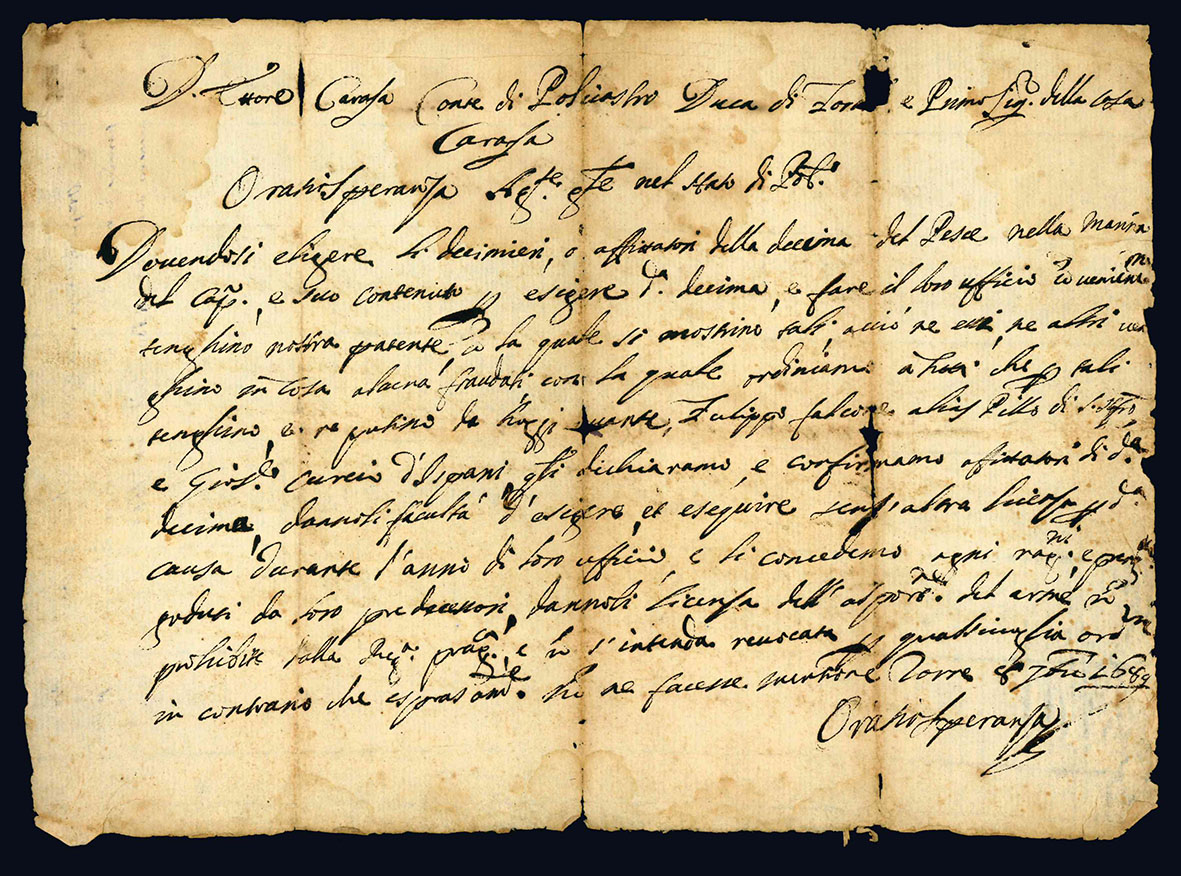 D. Ettore Carafa Conte di Policastro Duca di e Primo Sig.re della Casa
Carafa
Oratio Speranza Ag.te g.le nel stato di Pol.o
Dovendosi eligere li decimieri, o affittatori della decima del Pesce nella Marina
del Cap.o, e suo contenuto esigere d.a decima, e fare il loro ufficio
tenghino nostra patente, la quale si mostrino tali, acciò ne essi, ne altri ven
ghino in cosa alcuna fraudati con la quale ordiniamo a tutti che tali
tenghino, e reputino da hoggi avante, Filippo falcone alias Pillo di
e Gios.e Curcio d'Ispani gli dichiaramo, e confirmamo affittatori di d.a
decima, dannoli facultà d'esigere, et eseguire senz'altra licenza d.a
causa durante l'anno di loro ufficio, e li concedemo ogni
goduti da loro predecessori, dannoli licenza dell' del arme
prohibite dalla Reg.a pram.ca, e s'intenda revocata qualsivoglia ord
in contrario che ne facesse mentione Torre 8 7bre 1689
Oratio Speranza